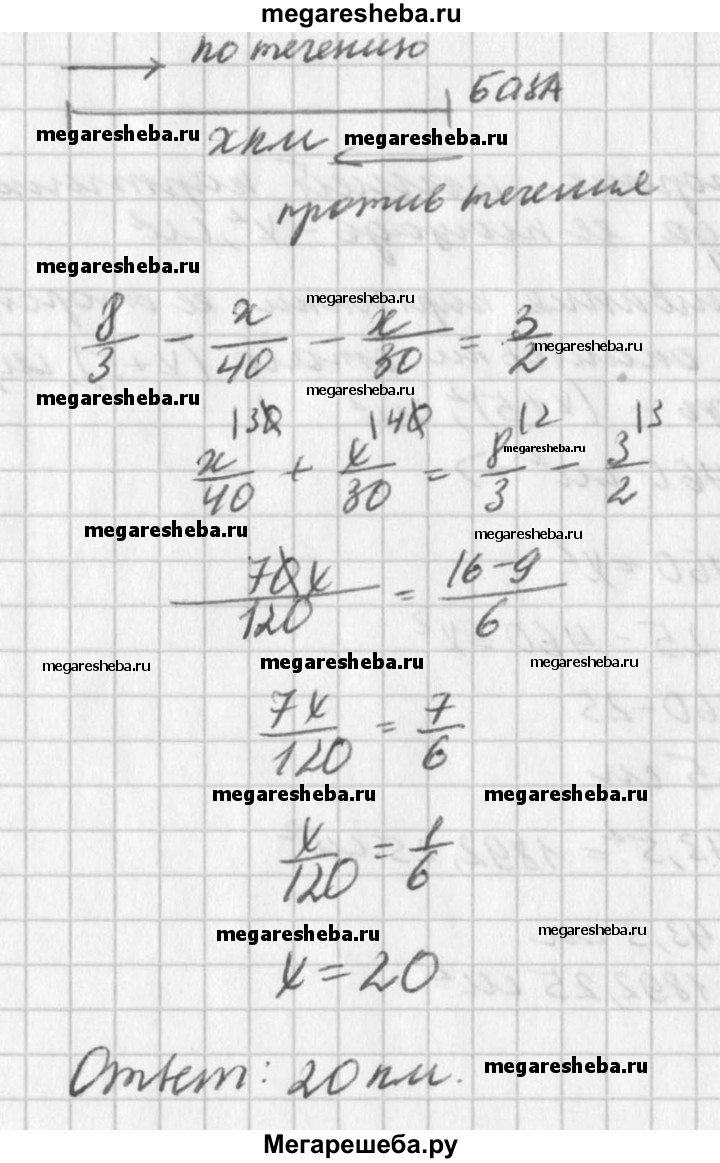 megaresheba.ru
по течению
БАЗА
megaresheba.ru
x км
megaresheba.ru
против течение
megaresheba.ru
megaresheba.ru
8/3 − x/40 − x/30 = 3/2
megaresheba.ru
megaresheba.ru
megaresheba.ru
x/40 |30 + x/30 |40 = 8/3 |2 − 3/2 |3
megaresheba.ru
megaresheba.ru
megaresheba.ru
70x/120 = 16-9/6
megaresheba.ru
megaresheba.ru
megaresheba.ru
7x/120 = 7/6
megaresheba.ru
megaresheba.ru
x/120 = 1/6
megaresheba.ru
megaresheba.ru
x = 20
Ответ: 20 км.
megaresheba.ru
Мегарешеба.ру